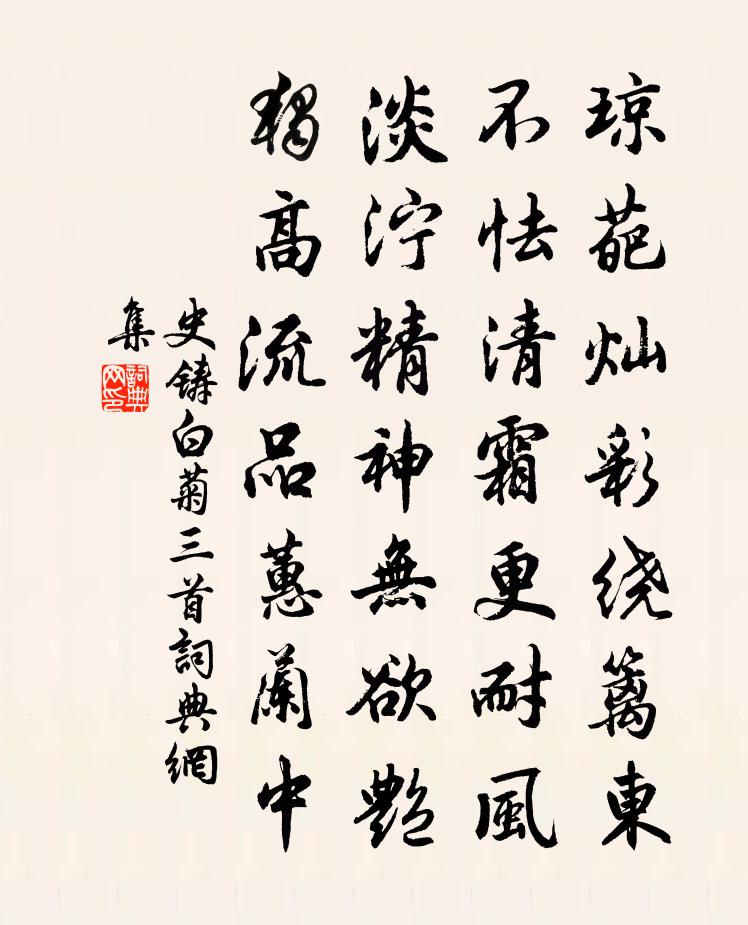 琼葩灿彩绕篱東
不怯清霜更耐風
淡泞精神無欲艷
獨高流品蕙蘭中
史铸白菊三首詞典網
集
詞典
网印